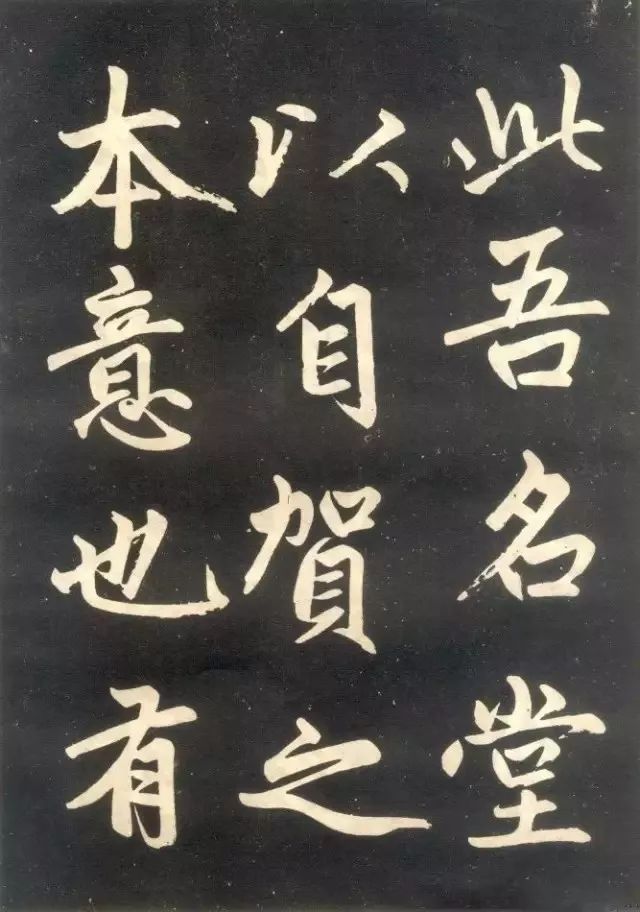 此吾名堂
以自賀之
本意也有